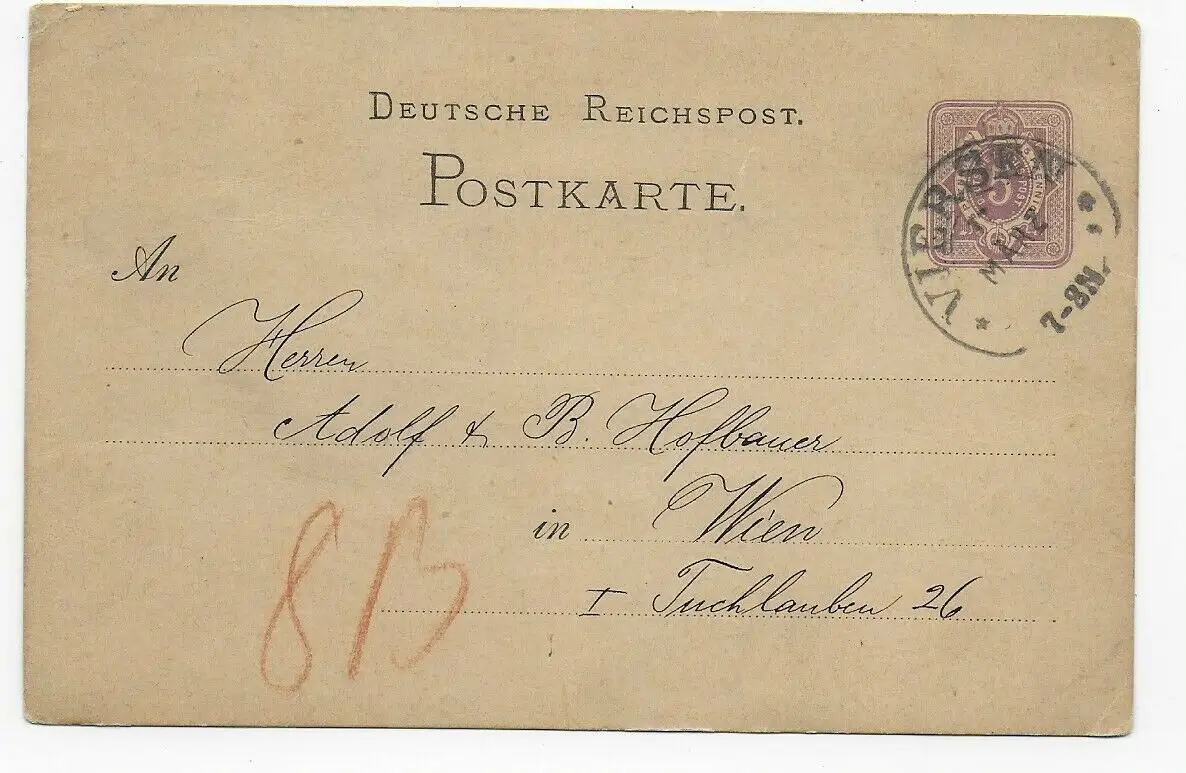 DEUTSCHE REICHSPOST.
POSTKARTE.
VIERSEN
MÄRZ
7-8N.
5
An
Herren
Adolf & B. Hofbauer
in Wien
I Tuchlauben 26
8 B